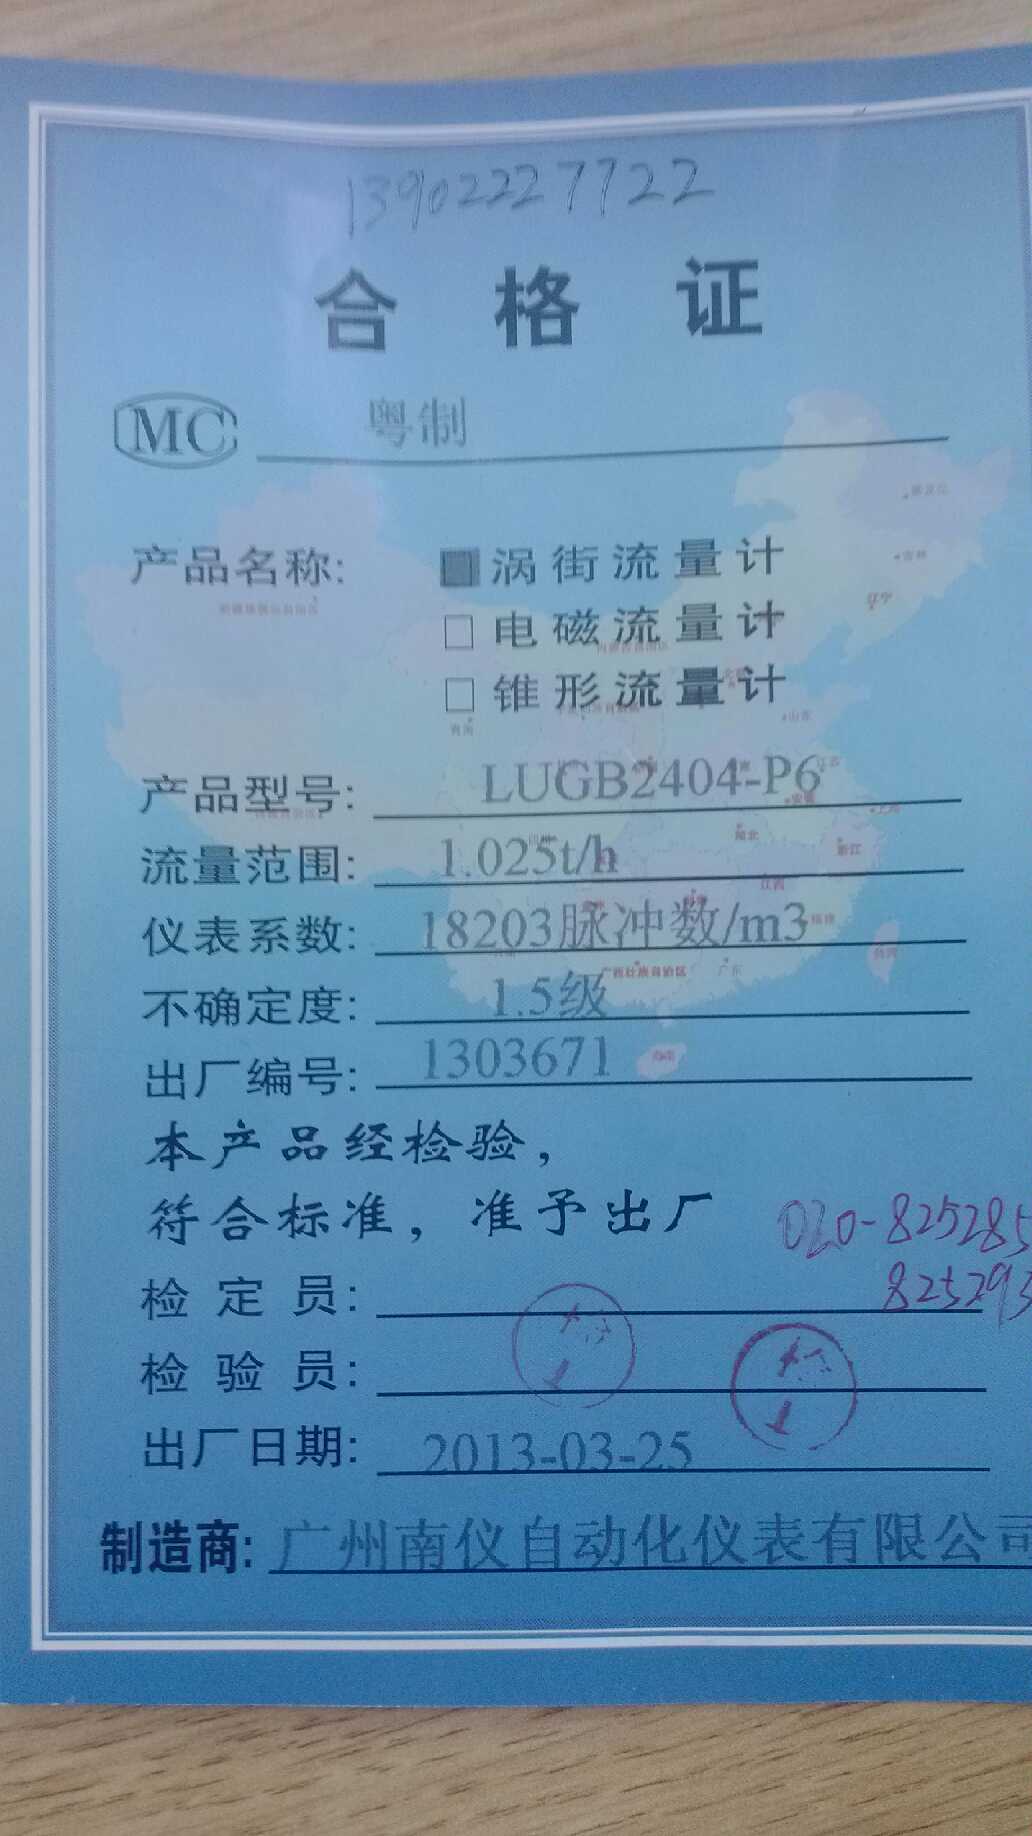 13902227722
合格证
MC 粤制
产品名称: ■涡街流量计
□电磁流量计
□锥形流量计
产品型号: LUGB2404-P6
流量范围: 1.025t/h
仪表系数: 18203脉冲数/m3
不确定度: 1.5级
出厂编号: 1303671
本产品经检验，
符合标准，准予出厂
020-825285
825293
检定员:
检验员:
出厂日期: 2013-03-25
制造商: 广州南仪自动化仪表有限公司